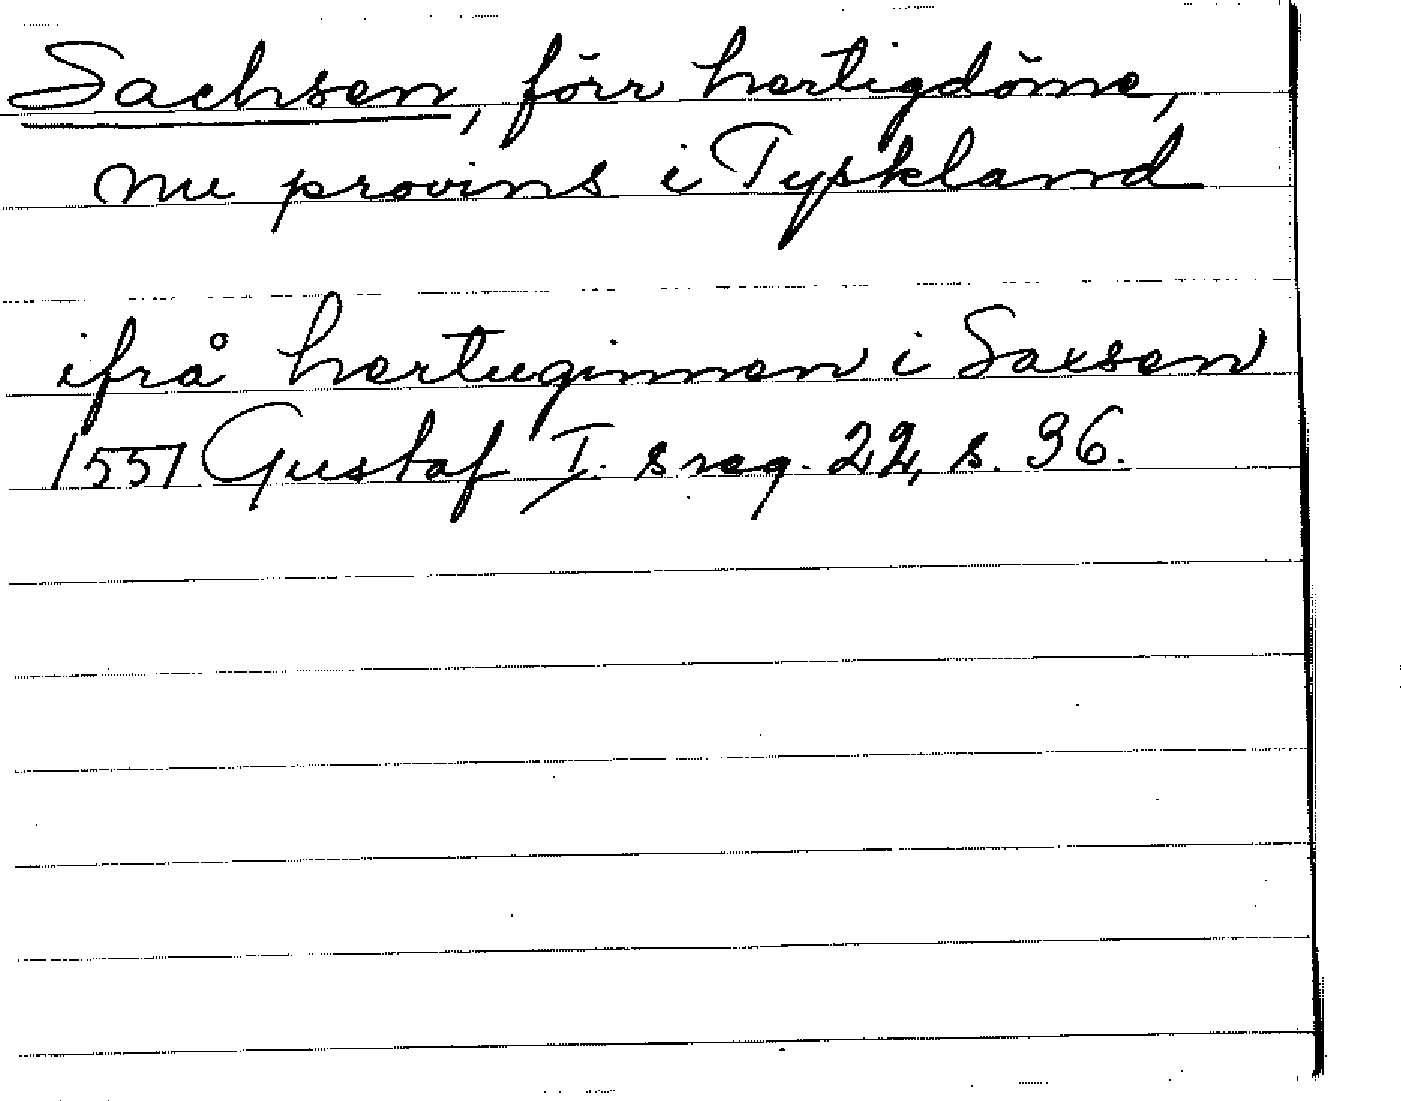 Sachsen, förr hertigdöme,
nu provins i Tyskland
ifrå hertuginnen i Saxsen
1551 Gustaf I. s reg. 22, s. 36.